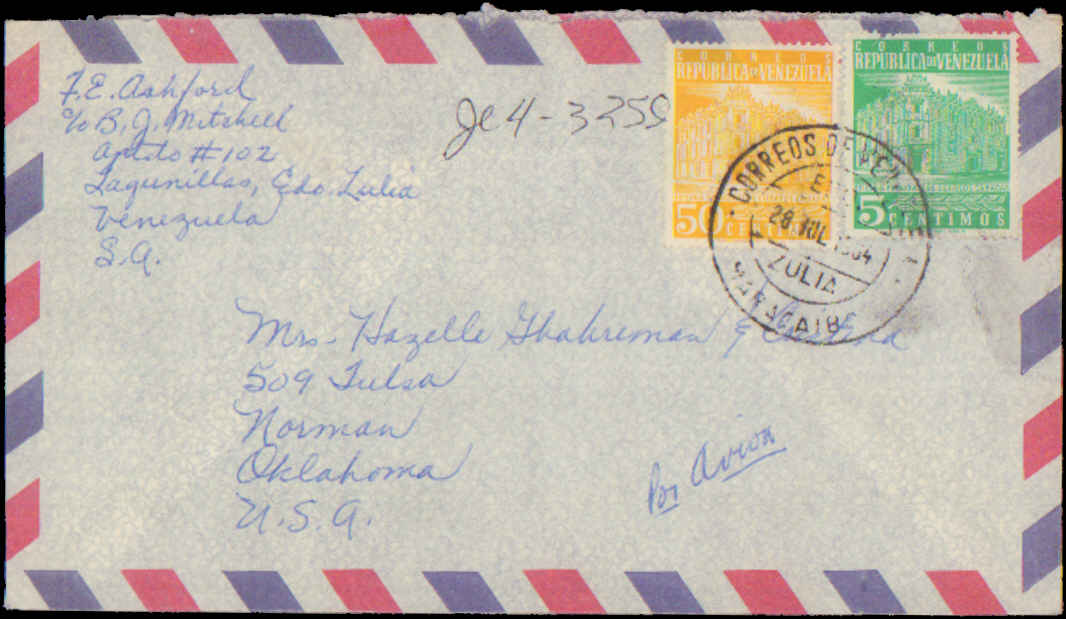 F.E. Ashford
c/o B. J. Mitchell
Aptdo #102
Lagunillas, Edo. Zulia
Venezuela
S.A.
Je 4-3259
CORREOS
REPUBLICA DE VENEZUELA
50 CENTIMOS
CORREOS
REPUBLICA DE VENEZUELA
5 CENTIMOS
CORREOS DE VENEZUELA
28 JUL 1964
ZULIA
MARACAIBO
Mrs. Hazelle Ghahreman &
509 Tulsa
Norman
Oklahoma
U.S.A.
Por Avion